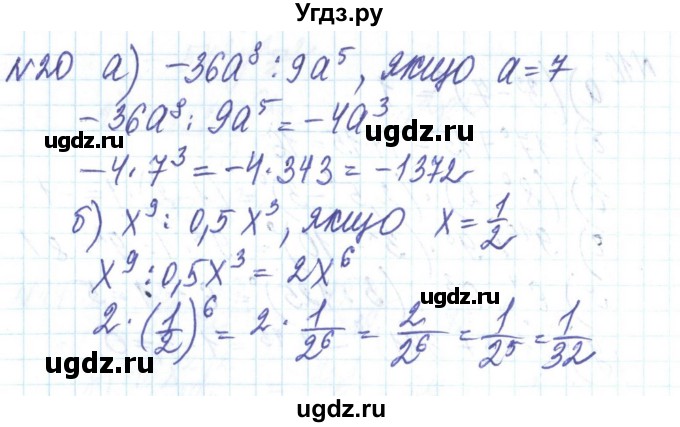 Угдз.ру
№20 а) -36a⁸ : 9a⁵, якщо a = 7
-36a⁸ : 9a⁵ = -4a³
ugdz.ru ugdz.ru
-4 · 7³ = -4 · 343 = -1372
ugdz.ru
б) x⁹ : 0,5x³, якщо x = 1/2
ugdz.ru
x⁹ : 0,5x³ = 2x⁶
ugdz.ru
2 · (1/2)⁶ = 2 · 1/2⁶ = 2/2⁶ = 1/2⁵ = 1/32
ugdz.ru ugdz.ru
ugdz.ru